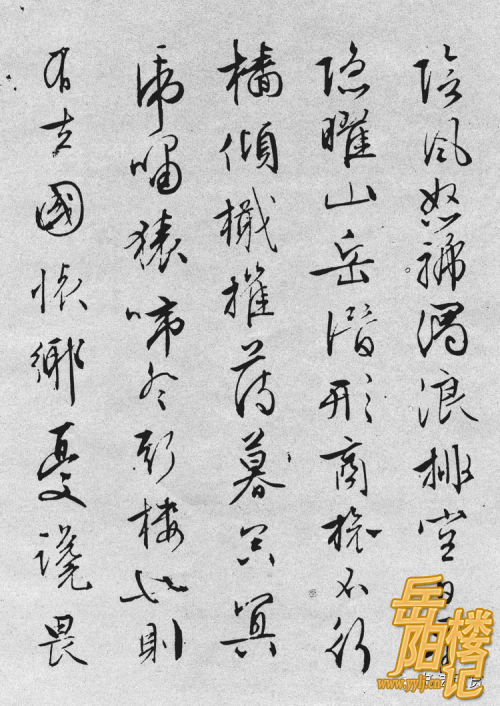 陰風怒號濁浪排空日星
隱曜山岳潛形商旅不行
檣傾檝摧薄暮冥冥
虎嘯猿啼登斯樓也則
有去國懷鄉憂讒畏
岳阳楼记
www.yylj.cn